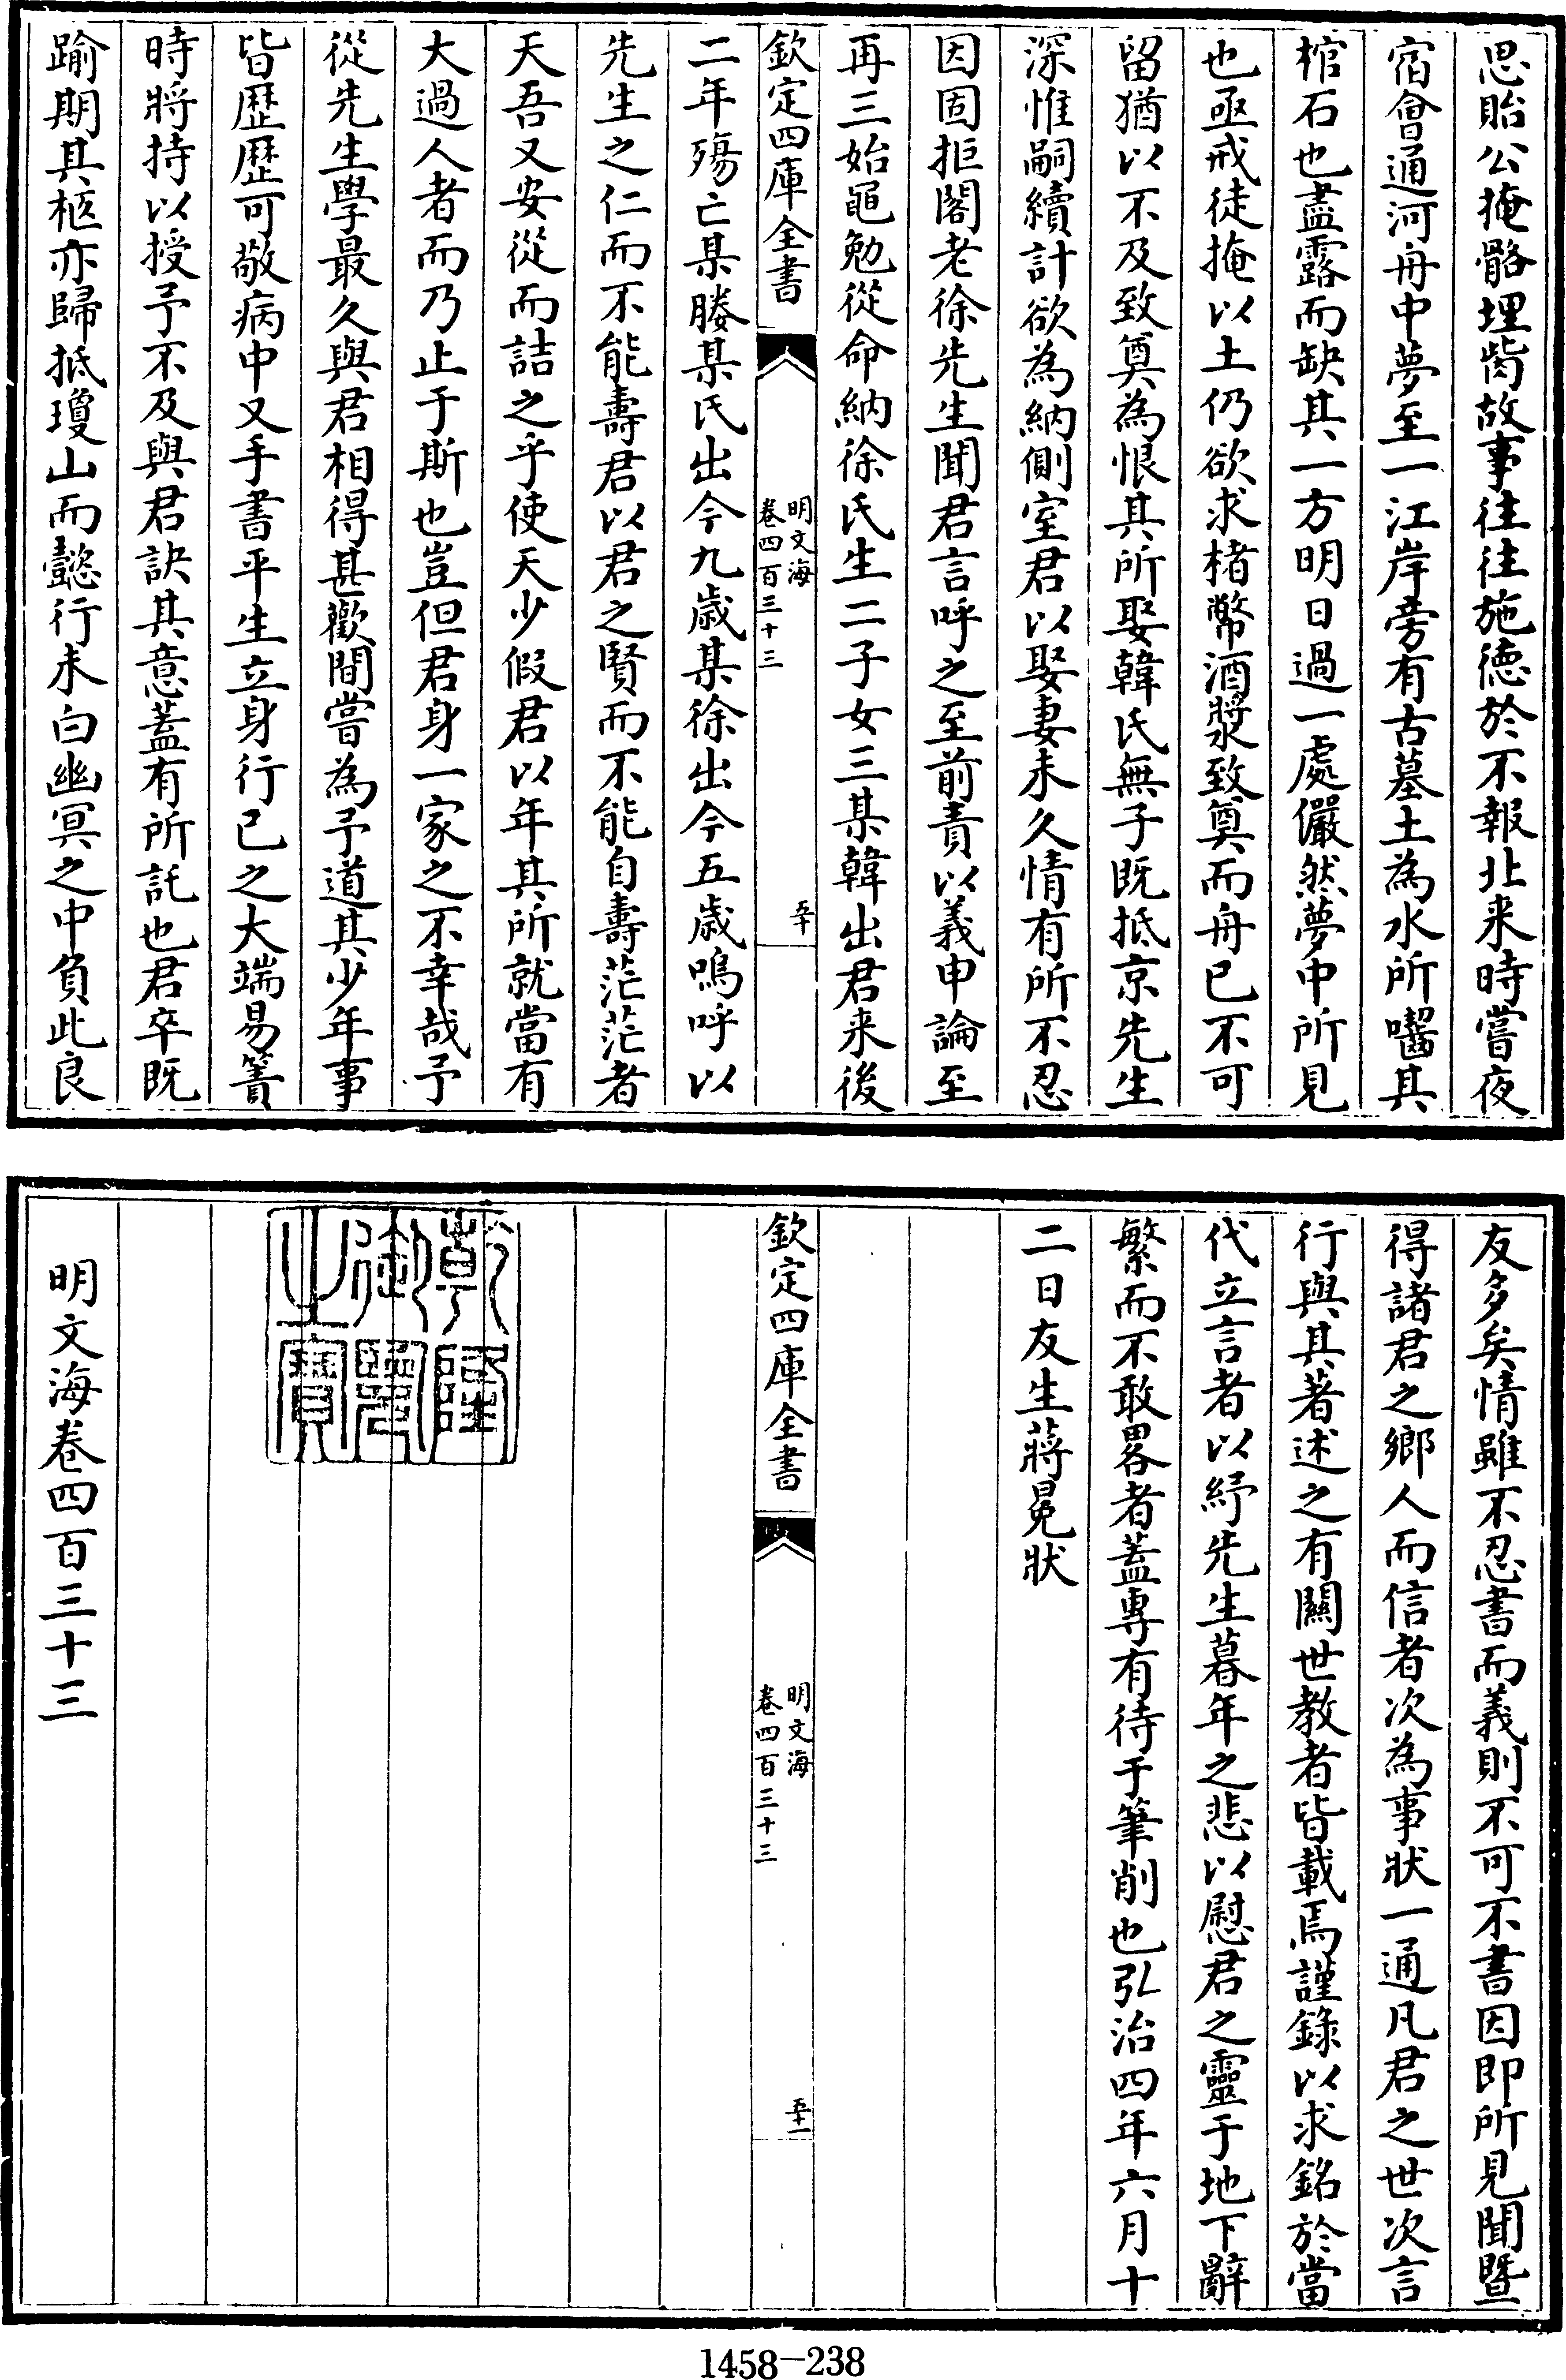 思貽公掩骼埋胔故事往往施徳於不報北来時嘗夜
宿會通河舟中夢至一江岸旁有古墓土為水所囓其
棺石也盡露而缺其一方明日過一處儼然夢中所見
也亟戒徒掩以土仍欲求楮幣酒漿致奠而舟已不可
留猶以不及致奠為恨其所娶韓氏無子既抵京先生
深惟嗣續計欲為納側室君以娶妻未久情有所不忍
因固拒閣老徐先生聞君言呼之至前責以義申論至
再三始黽勉從命納徐氏生二子女三某韓出君来後
欽定四庫全書
明文海
卷四百三十三
五十
二年殤亡某媵某氏出今九歳某徐出今五歳嗚呼以
先生之仁而不能壽君以君之賢而不能自壽茫茫者
天吾又安從而詰之乎使天少假君以年其所就當有
大過人者而乃止于斯也豈但君身一家之不幸哉予
從先生學最久與君相得甚歡間嘗為予道其少年事
皆歴歴可敬病中又手書平生立身行己之大端易簀
時將持以授予不及與君訣其意蓋有所託也君卒既
踰期其柩亦歸抵瓊山而懿行未白幽冥之中負此良
友多矣情雖不忍書而義則不可不書因即所見聞暨
得諸君之鄉人而信者次為事狀一通凡君之世次言
行與其著述之有關世教者皆載焉謹錄以求銘於當
代立言者以紓先生暮年之悲以慰君之靈于地下辭
繁而不敢畧者蓋專有待于筆削也弘治四年六月十
二日友生蔣冕狀
欽定四庫全書
明文海
卷四百三十三
五十一
乾隆
御覽
之寶
明文海卷四百三十三
1458-238